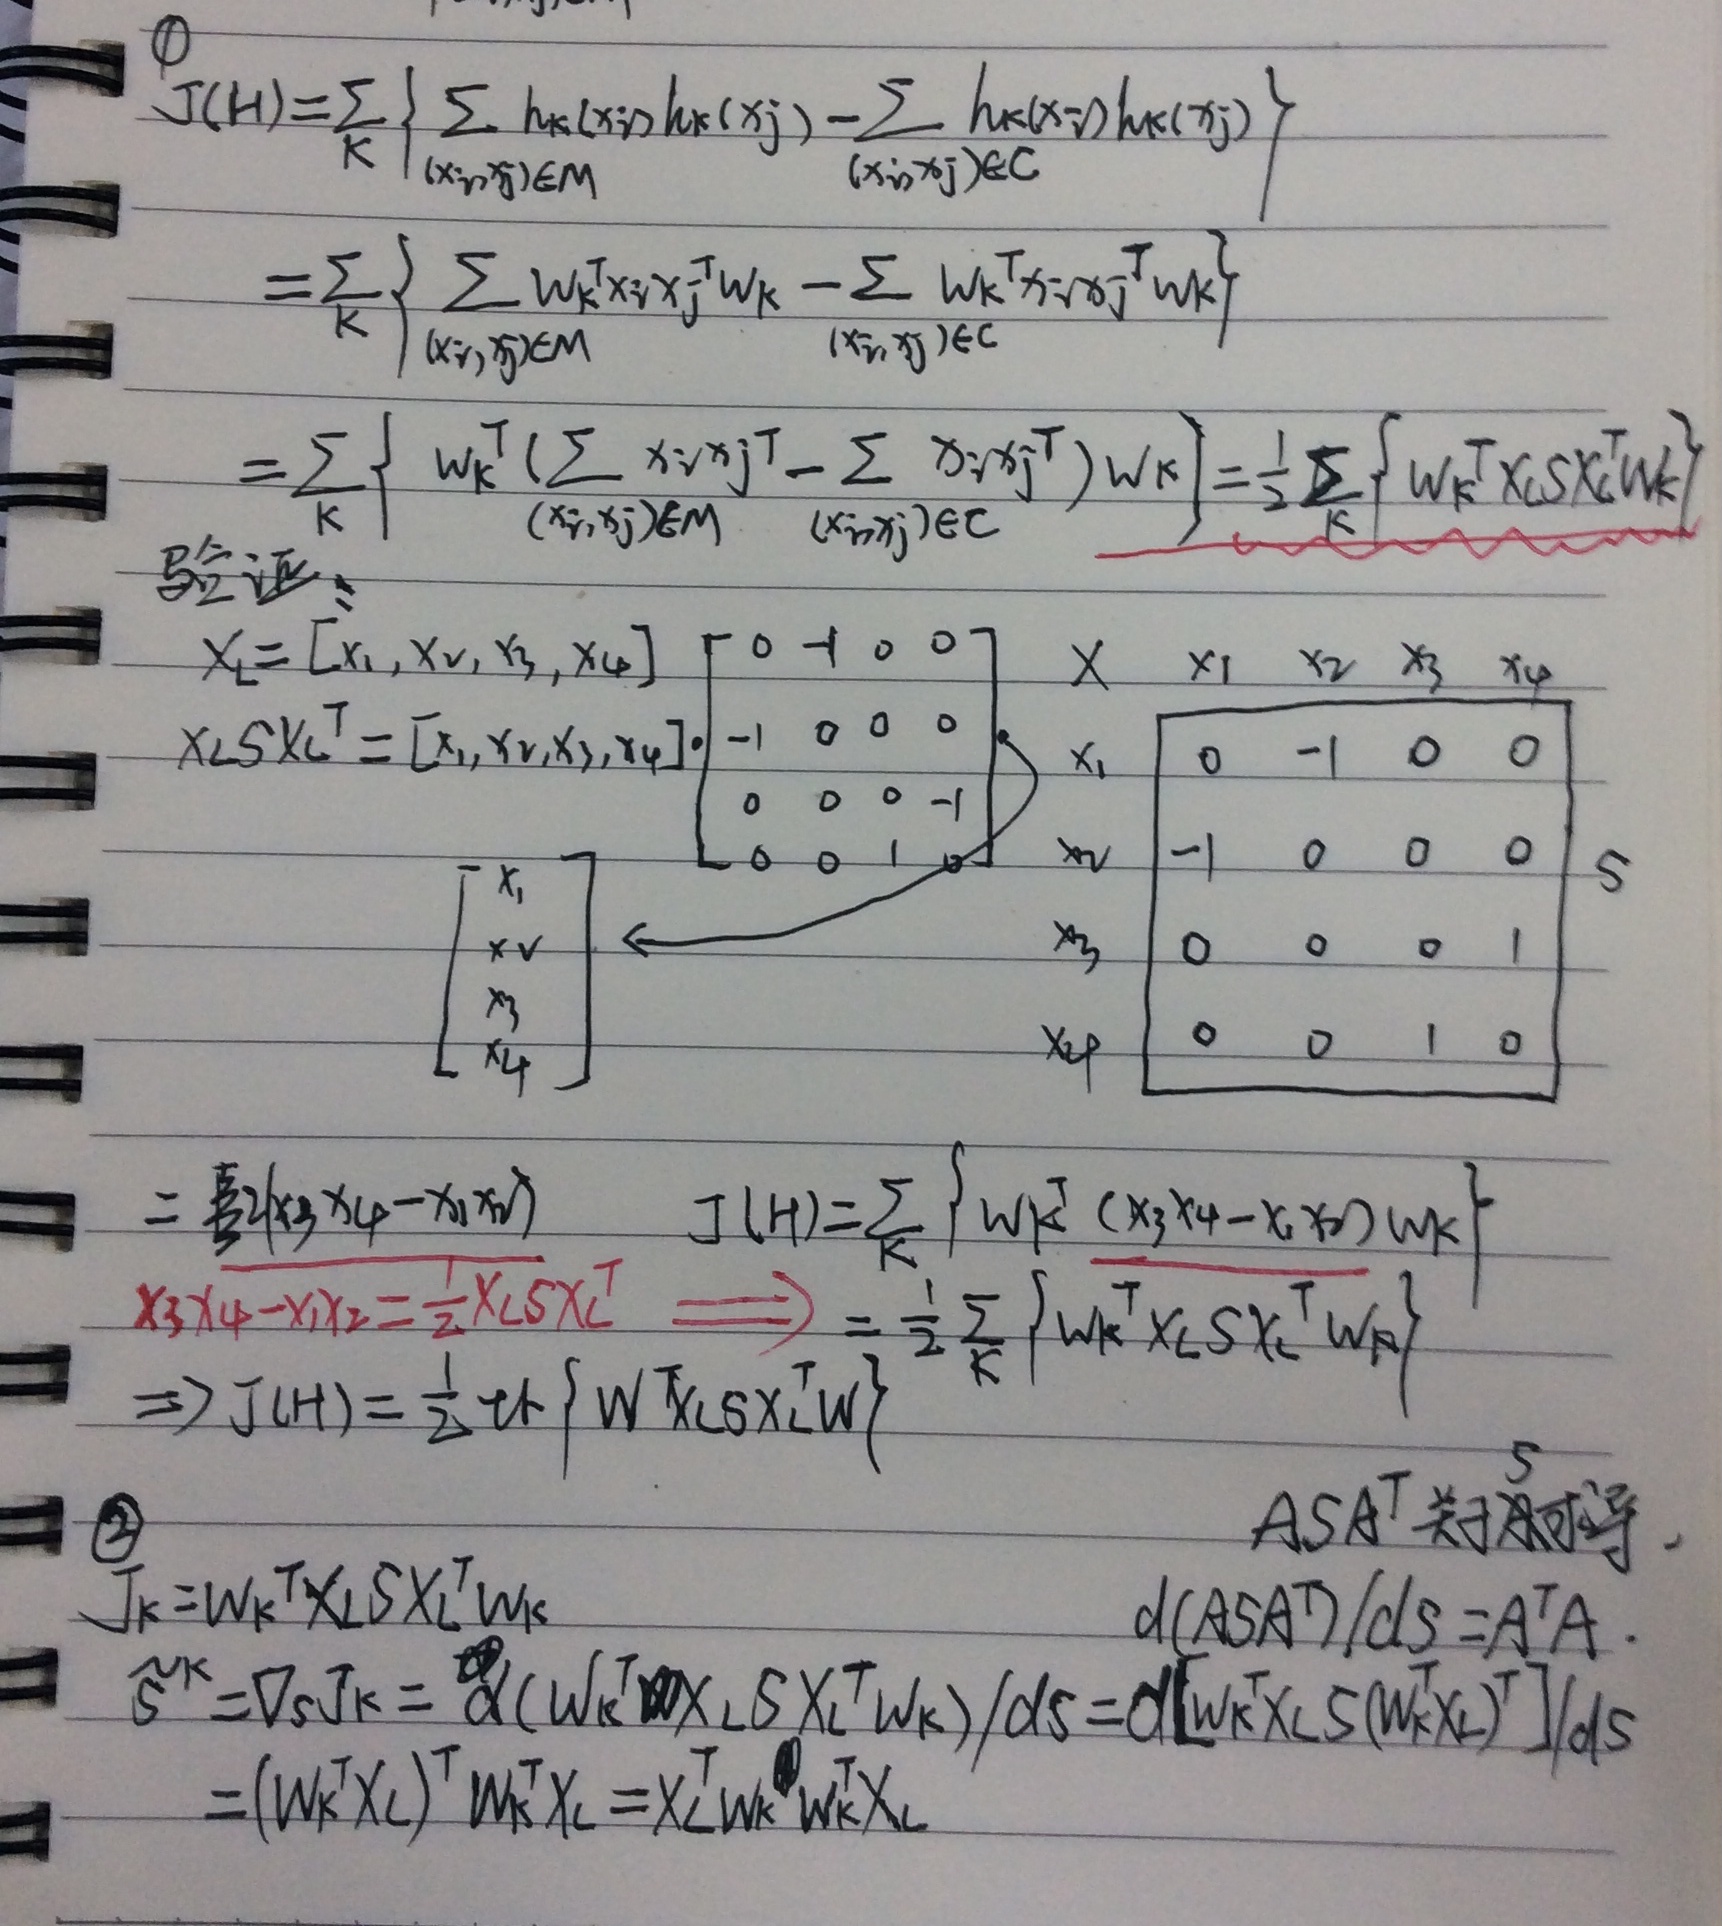 ①
J(H)=∑_K { ∑_{(xi,xj)∈M} h_K(xi)h_K(xj) − ∑_{(xi,xj)∈C} h_K(xi)h_K(xj) }
=∑_K { ∑_{(xi,xj)∈M} W_K^T xi xj^T W_K − ∑_{(xi,xj)∈C} W_K^T xi xj^T W_K }
=∑_K { W_K^T (∑_{(xi,xj)∈M} xi xj^T − ∑_{(xi,xj)∈C} xi xj^T) W_K } = 1/2 ∑_K { W_K^T X_L S X_L^T W_K }
验证:
X_L=[x1, x2, x3, x4]
X_L S X_L^T = [x1, x2, x3, x4]·
0 -1 0 0
-1 0 0 0
0 0 0 -1
0 0 1 0
x1
x2
x3
x4
X x1 x2 x3 x4
x1 0 -1 0 0
x2 -1 0 0 0 S
x3 0 0 0 1
x4 0 0 1 0
= 2(x3x4−x1x2)
J(H)=∑_K { W_K^T (x3x4−x1x2) W_K }
x3x4−x1x2=1/2 X_L S X_L^T ⟹
= 1/2 ∑_K { W_K^T X_L S X_L^T W_K }
⇒ J(H)=1/2 tr { W^T X_L S X_L^T W }
②
ASA^T 关于S可导.
d(ASA^T)/dS=A^T A.
J_K=W_K^T X_L S X_L^T W_K
S̃^K=∇_S J_K= d(W_K^T X_L S X_L^T W_K)/dS=d[W_K^T X_L S(W_K^T X_L)^T]/dS
=(W_K^T X_L)^T W_K^T X_L=X_L^T W_K W_K^T X_L